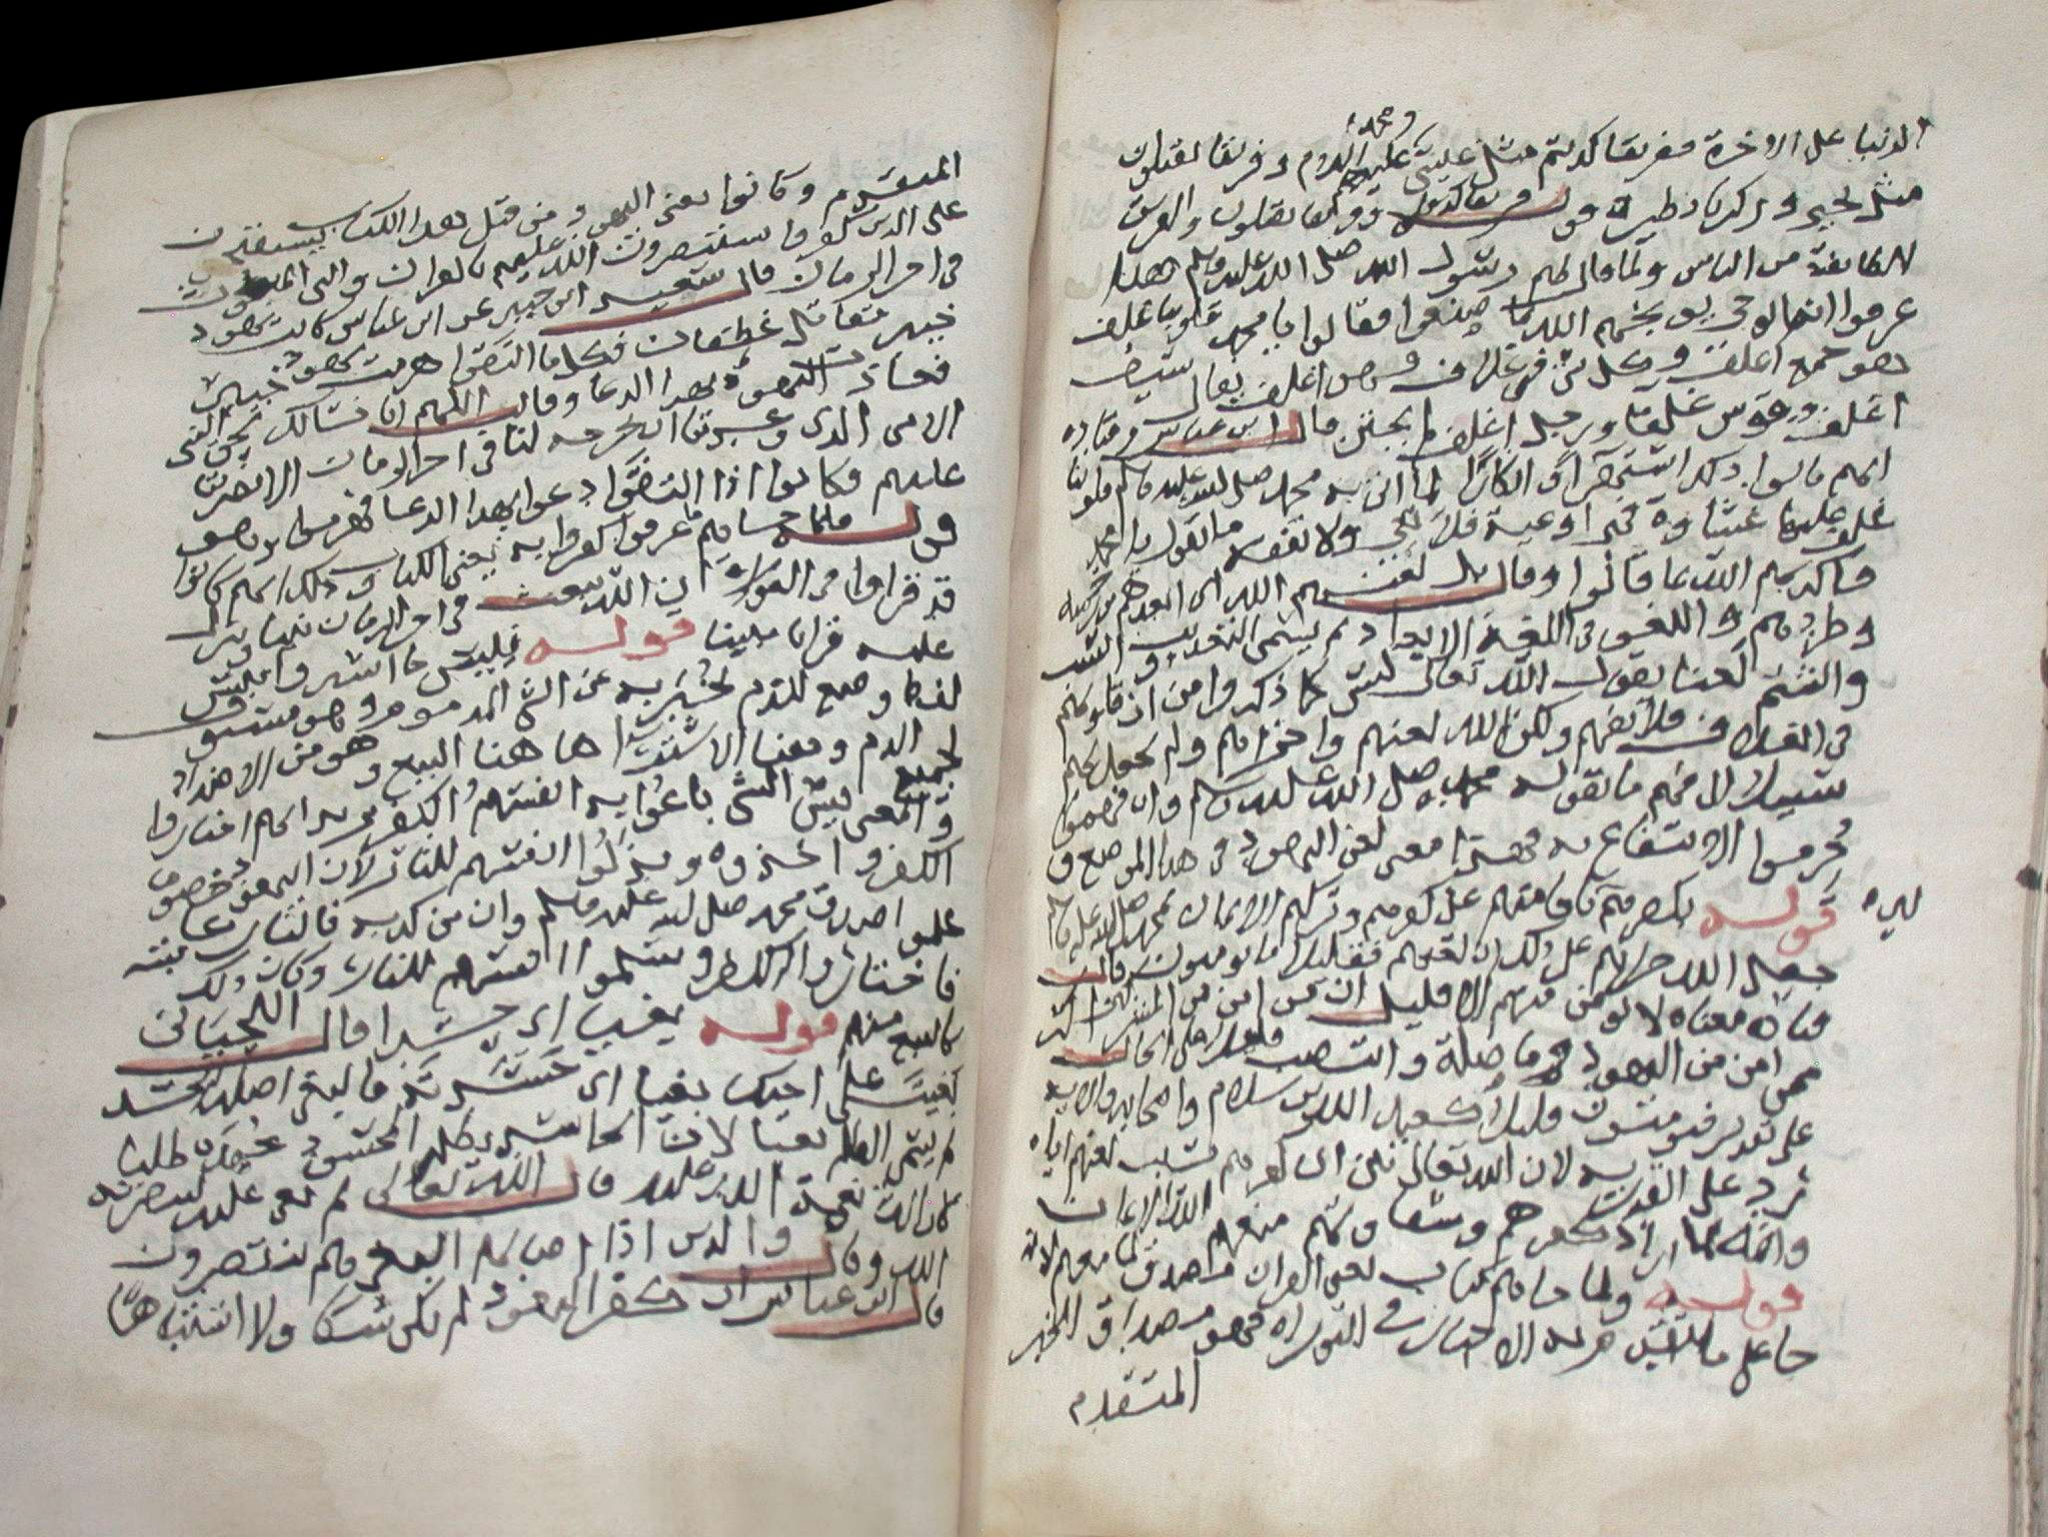 ومحمد
الدنيا على الاخرة ففريقا كذبتم مثل عيسى عليهم السلام وفريقا تقتلون
مثل يحيى وزكريا نظيره قوله فريقا كذبوا وفريقا يقتلون والفريق
الطايفة من الناس ولما قال لهم رسول الله صلى الله عليه وسلم هذا
عرفوا انه الوحي بما صنعوا فقالوا يا محمد قلوبنا غلف
وهو جمع اغلف وكل شي في غلاف فهو اغلف يقال سيف
اغلف وقوس غلفا ورجل اغلف لم يختن قال ابن عباس وقتاده
انهم قالوا ذلك استهزآ وانكارا لما اتى به محمد صلى الله عليه وسلم قلوبنا
غلف عليها غشاوة فهي اوعية فلا تعي ولا تفقه ما تقول يا محمد
فاكذبهم الله بما قالوا وقال بل لعنهم الله اي ابعدهم من رحمته
وطردهم واللعن في اللغة الابعاد ثم يسمى التعذيب والسب
والشتم لعنا يقول الله تعالى ليس كما ذكروا من ان قلوبهم
في الغلاف فلا تفهم ولكن الله لعنهم واخزاهم ولم يجعل لهم
سبيلا لا فهم ما يقوله محمد صلى الله عليه وسلم وان فهموا
حرموا الانتفاع به فهذا معنى لعن اليهود في هذا الموضع و
غيره
قوله بكفرهم باقامتهم على كفرهم وتركهم الايمان بمحمد صلى الله عليه وسلم
جعل الله جزاهم على ذلك ان لعنهم فقليلا ما يومنون قال
قتاده معناه لا يومن منهم الا قليل لان من امن من المشركين اكثر
ممن امن من اليهود وما صلة والنصب قليلا على الحال
على تقدير فيومنون قليلا كعبد الله بن سلام واصحابه والايه
ترد على القدريه لان الله تعالى بين ان كفرهم بسبب لعنهم اياه
وانه لما اراد كفرهم وشقاوتهم منعهم الله الايمان
قوله ولما جاهم كتاب يعنى القران مصدق لما معهم لانه
جا على ما تقدم به الاخبار في التوراه فهو مصداق الخبر
المتقدم
المتقدم وكانوا يعنى اليهود من قبل هذا الكتاب يستفتحون
على الذين كفروا يستنصرون الله عليهم بالقران والنبي المبعوث
في اخر الزمان قال سعيد ابن جبير عن ابن عباس كانت يهود
خيبر تقاتل غطفان فكلما التقوا هزمت يهود خيبر
فعاذت اليهود بهذا الدعا وقالت اللهم انا نسالك بحق النبى
الامى الذي وعدتنا ان تخرجه لنا في اخر الزمان الا نصرتنا
عليهم فكانوا اذا التقوا دعوا بهذا الدعا فهزموا وهو
قوله فلما جاهم ما عرفوا كفروا به يعنى الكتاب وذلك انهم كانوا
قد قراوا في التوراه ان الله يبعث في اخر الزمان نبيا وينزل
عليه قرانا مبينا قوله فبيس ما اشتروا بيس
لفظ وضع للذم يخبر به عن الشي المذموم وهو مستوف
لجميع الذم ومعنا الاشترا ها هنا البيع وهو من الاضداد
والمعنى بيس الشي باعوا به انفسهم الكفر يريد انهم اختاروا
الكفر واخذوه وبذلوا انفسهم للنار لان اليهود خصوصا
علموا صدق محمد صلى الله عليه وسلم وان من كذبه فالنار عاقبته
فاختاروا الكفر وسلموا انفسهم للنار وكان ذلك
كالبيع منهم قوله بغيا اي حسدا قال اللحياني
بغيت على اخيك بغيا اي حسدته فالبغى اصله الحسد
ثم يسمى الظلم بغيا لان الحاسد يظلم المحسود جهده طلبا
لازالة نعمة الله عليه قال الله تعالى ثم بغى عليه لينصرنه
الله وقال والذين اذا اصابهم البغى هم ينتصرون
قال ابن عباس ان كفر اليهود لم يكن شكا ولا اشتباها